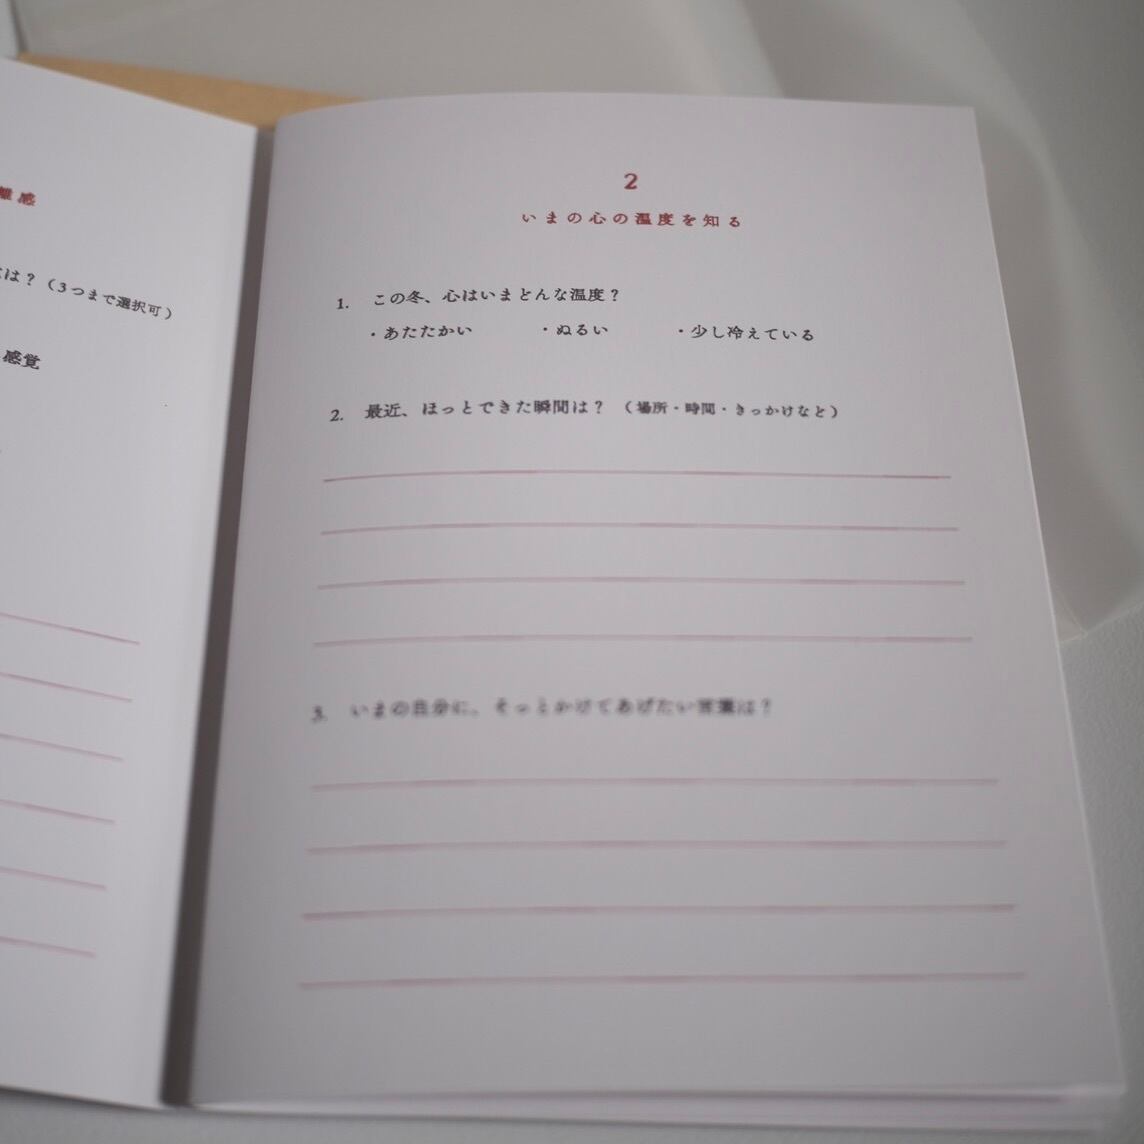 離感
は？（3つまで選択可）
感覚
2
いまの心の温度を知る
1. この冬、心はいまどんな温度？
・あたたかい ・ぬるい ・少し冷えている
2. 最近、ほっとできた瞬間は？（場所・時間・きっかけなど）
3. いまの自分に、そっとかけてあげたい言葉は？